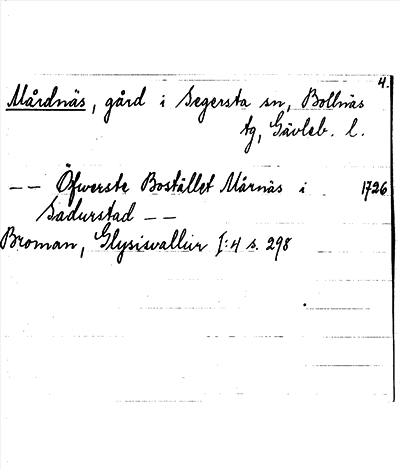 4.
Mårdnäs, gård i Segersta sn, Bollnäs
tg, Gävleb. l.
— — Öfwerste Bostället Mårnäs i 1726
Sadurstad — —
Broman, Glysisvallur I:4 s. 298